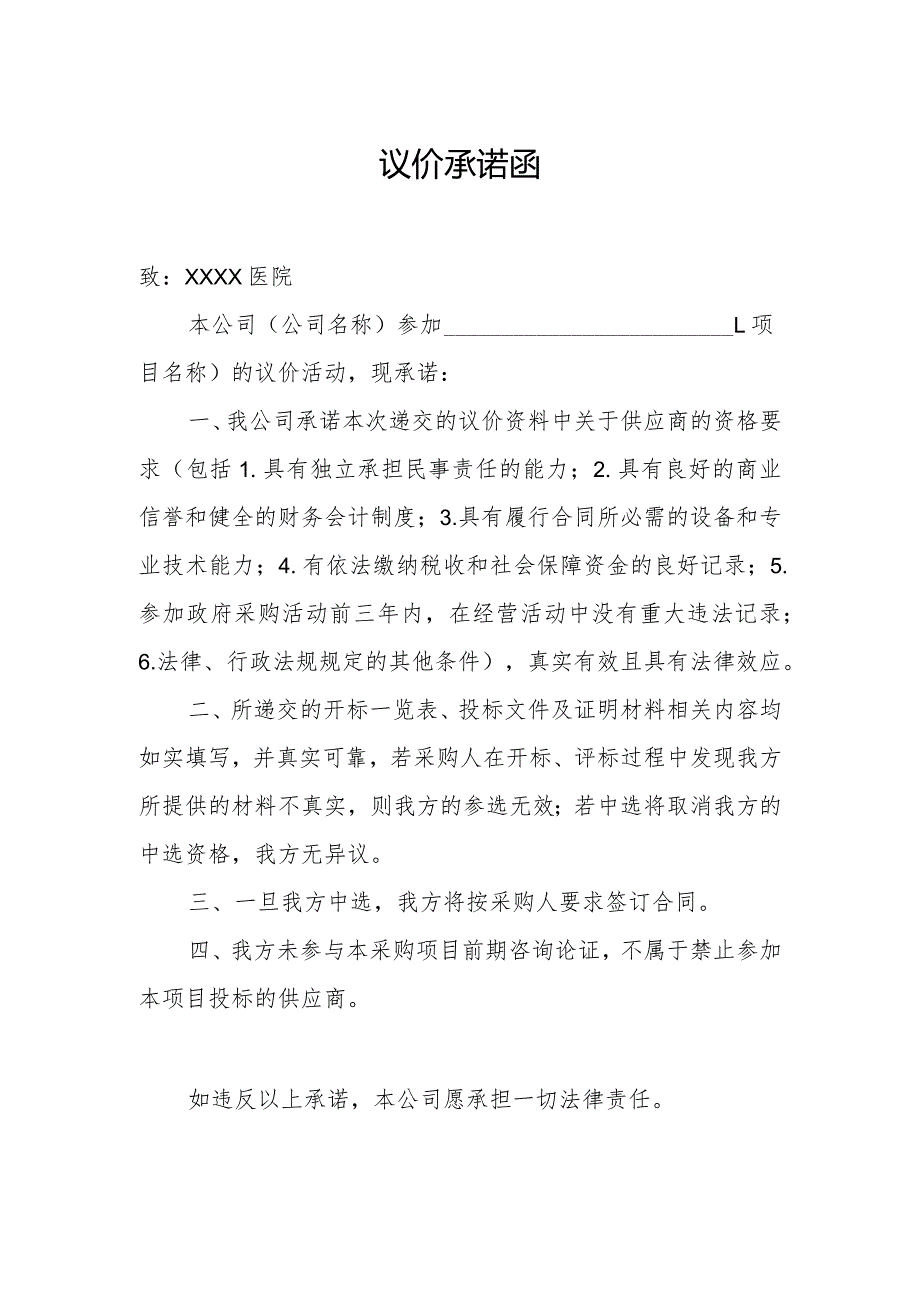 议价承诺函
致：XXXX 医院
本公司（公司名称）参加_____________________________L 项
目名称）的议价活动，现承诺：
一、我公司承诺本次递交的议价资料中关于供应商的资格要
求（包括 1. 具有独立承担民事责任的能力；2. 具有良好的商业
信誉和健全的财务会计制度；3.具有履行合同所必需的设备和专
业技术能力；4. 有依法缴纳税收和社会保障资金的良好记录；5.
参加政府采购活动前三年内，在经营活动中没有重大违法记录；
6.法律、行政法规规定的其他条件），真实有效且具有法律效应。
二、所递交的开标一览表、投标文件及证明材料相关内容均
如实填写，并真实可靠，若采购人在开标、评标过程中发现我方
所提供的材料不真实，则我方的参选无效；若中选将取消我方的
中选资格，我方无异议。
三、一旦我方中选，我方将按采购人要求签订合同。
四、我方未参与本采购项目前期咨询论证，不属于禁止参加
本项目投标的供应商。
如违反以上承诺，本公司愿承担一切法律责任。